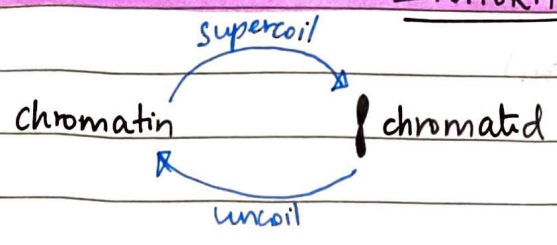 supercoil
chromatin chromatid
uncoil